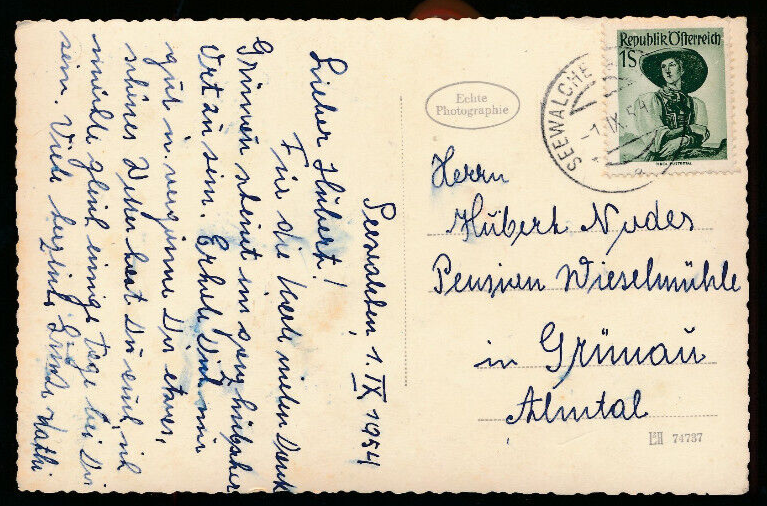 Seewalchen, 1. IX 1954
Lieber Hubert!
Für die Karte vielen Dank
Grünau scheint ein ganz hübscher
Ort zu sein. Erhole Dich nur
gut u. vergönne Dir etwas,
schönes Wetter hast Du auch, ich
möchte gleich einige Tage bei Dir
sein. Viele herzliche Grüße
Echte
Photographie
SEEWALCHE
-1. IX. 54
Republik Österreich
1S
Herrn
Hubert Nudes
Pension Wieselmühle
in Grünau
Almtal
74737